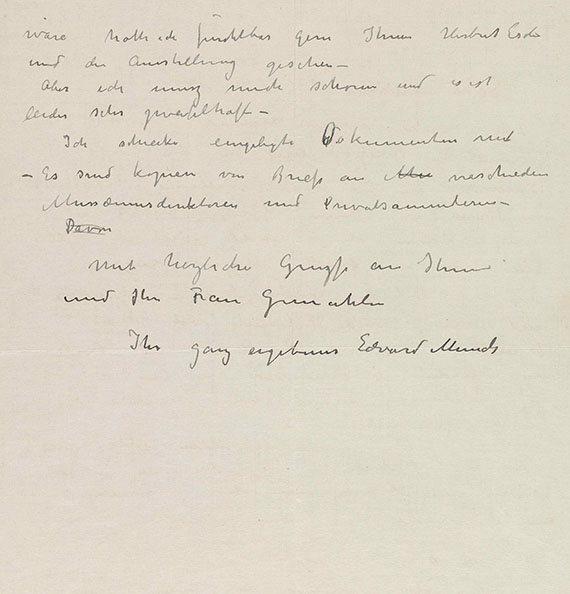 wäre hatte ich furchtbar gern Ihnen Herbert Esche
und die Ausstellung gesehen –
Aber ich muss mich schonen und es ist
leider sehr zweifelhaft –
Ich schicke eingelegte Dokumenten mit
– Es sind kopien von Briefe an verschieden
Musseumsdirektoren und Privatsammleren –
Davon
Mit herzliche Grüsse an Ihnen
und Ihr Frau Gemahlin
Ihr ganz ergebener Edvard Munch